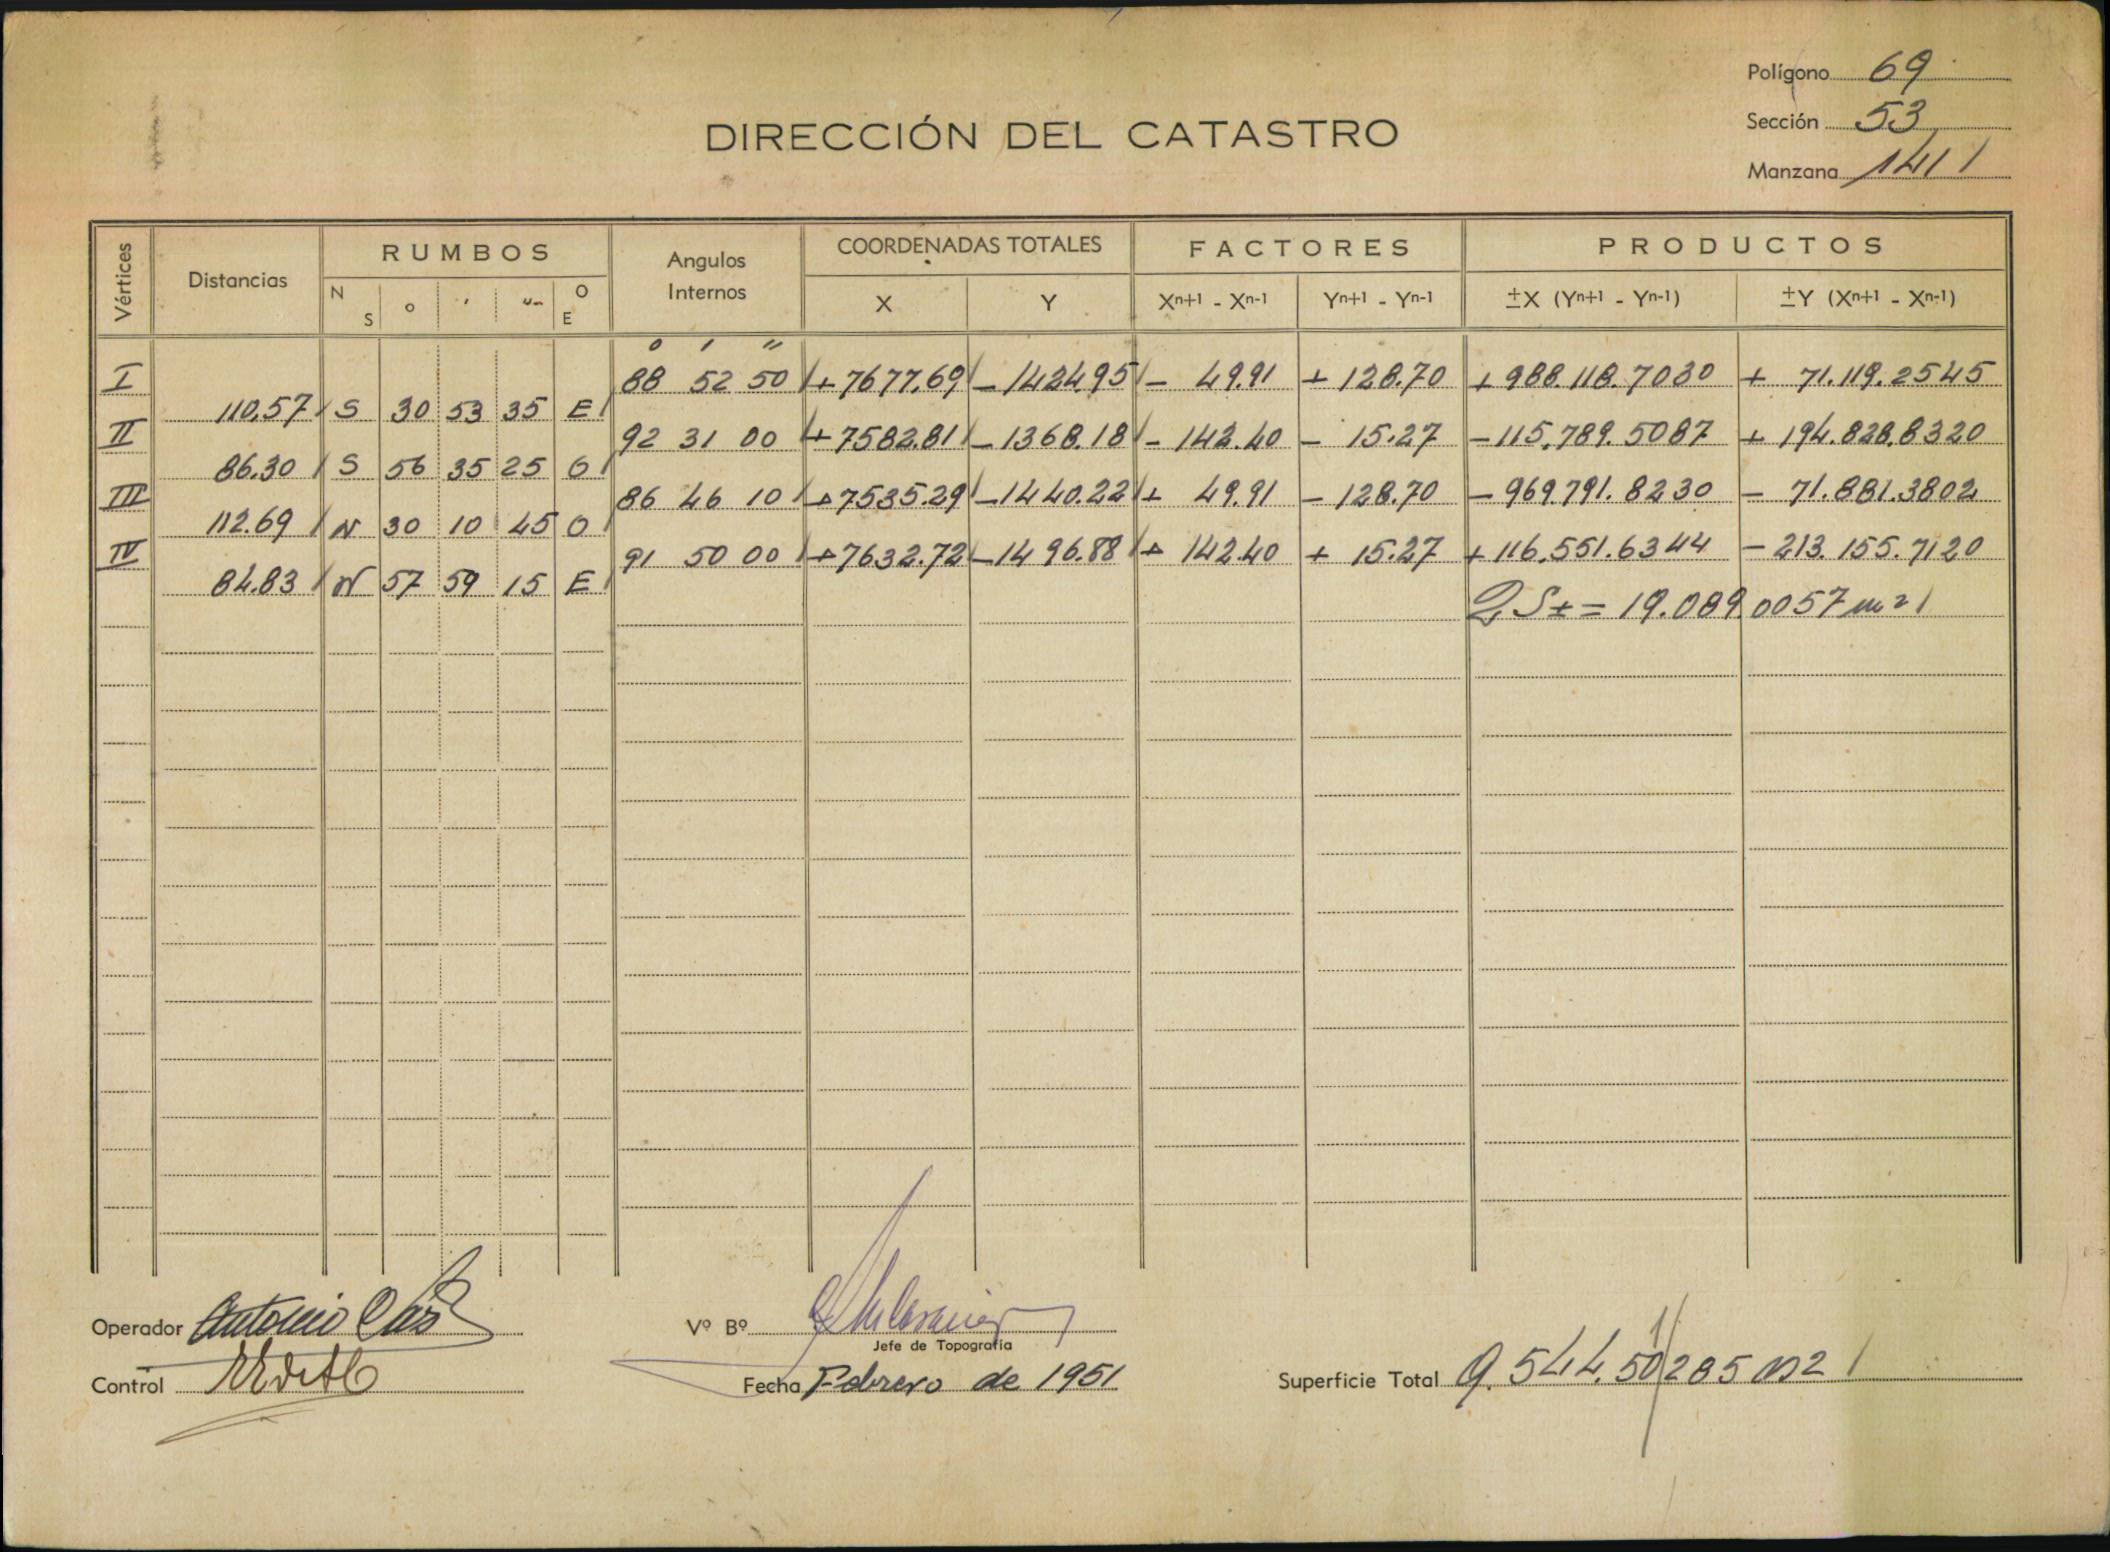 Polígono 69
Sección 53
Manzana 141
DIRECCIÓN DEL CATASTRO
Vértices Distancias RUMBOS Angulos Internos COORDENADAS TOTALES FACTORES PRODUCTOS
N S o ' " O E X Y Xn+1 - Xn-1 Yn+1 - Yn-1 ±X (Yn+1 - Yn-1) ±Y (Xn+1 - Xn-1)
o ' "
I 88 52 50 +7677.69 -1424.95 - 49.91 + 128.70 +988.118.7030 + 71.119.2545
110.57 S 30 53 35 E
II 92 31 00 +7582.81 -1368.18 -142.40 - 15.27 -115.789.5087 + 194.828.8320
86.30 S 56 35 25 O
III 86 46 10 +7535.29 -1440.22 + 49.91 - 128.70 -969.791.8230 - 71.881.3802
112.69 N 30 10 45 O
IV 91 50 00 +7632.72 -1496.88 + 142.40 + 15.27 +116.551.6344 - 213.155.7120
84.83 N 57 59 15 E
2S± = 19.089.0057 m2
Operador Antonio
Vº Bº
Jefe de Topografía
Control
Fecha Febrero de 1951
Superficie Total 9.544.50285 m2